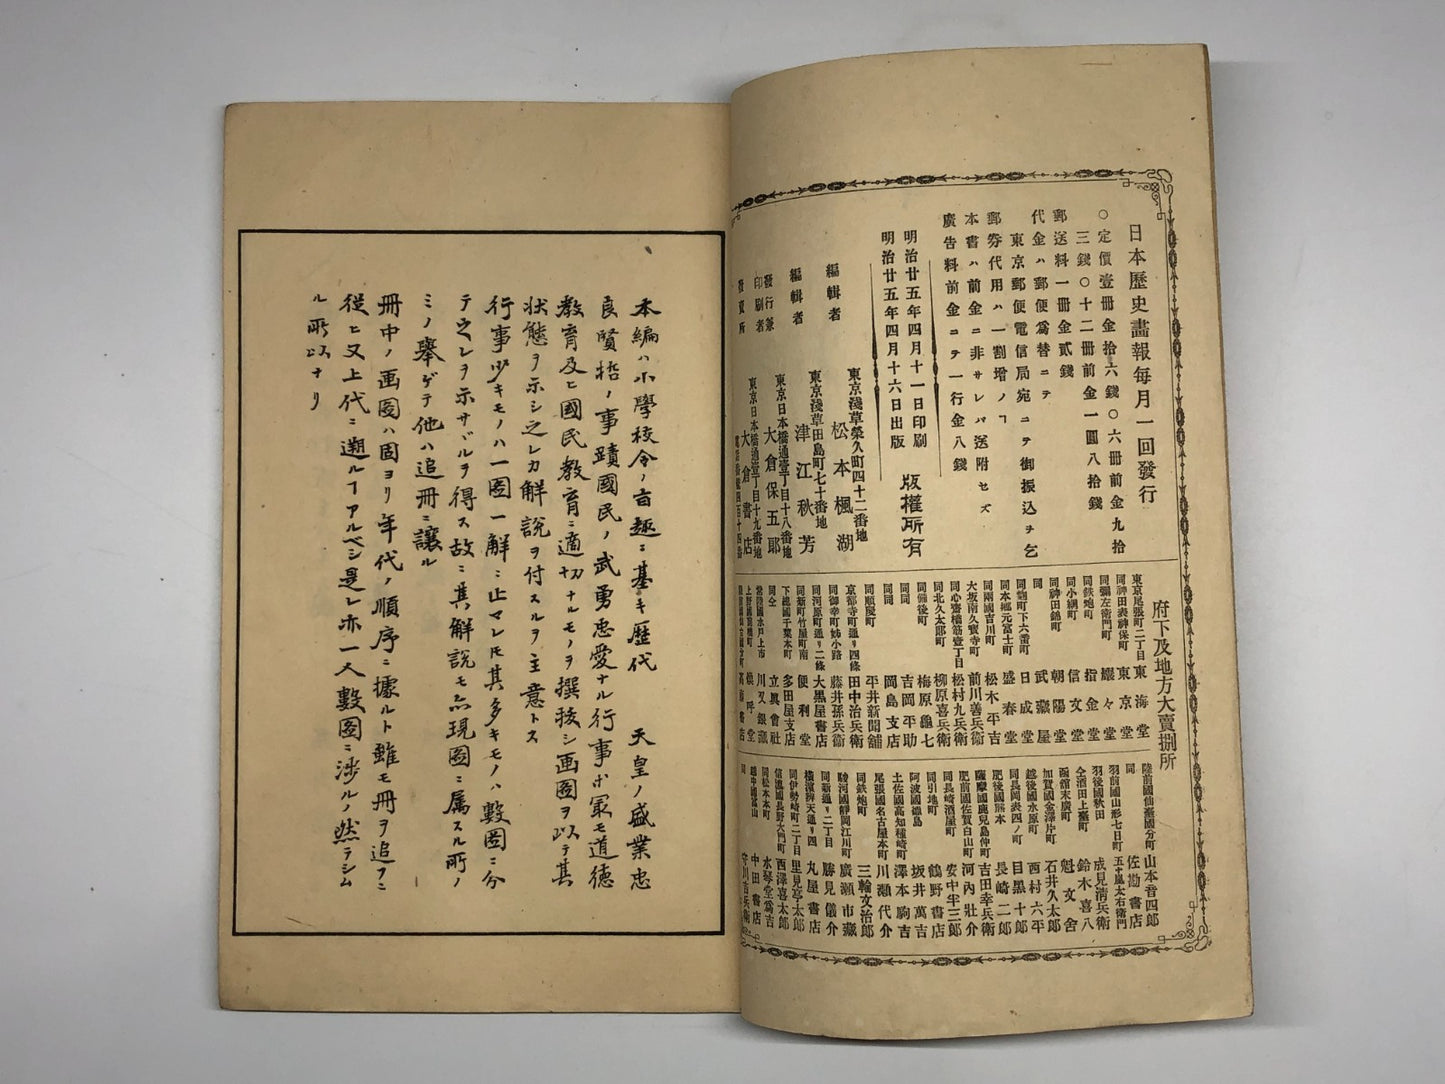 日本歷史畵報每月一回發行
○定價壹冊金拾六錢○六冊前金九拾
三錢○十二冊前金一圓八拾錢
郵送料一冊金貳錢
代金ハ郵便爲替ニテ
東京郵便電信局宛ニテ御振込ヲ乞
郵券代用ハ一割增ノヿ
本書ハ前金ニ非サレバ送附セズ
廣告料前金ニテ一行金八錢
明治廿五年四月十一日印刷
明治廿五年四月十六日出版
版權所有
編輯者 東京淺草榮久町四十二番地 松本楓湖
編輯者 東京淺草田島町七十番地 津江秋芳
發行兼印刷者 東京日本橋通壹丁目十八番地 大倉保五郞
發賣所 東京日本橋通壹丁目十九番地 大倉書店
府下及地方大賣捌所
東京尾張町二丁目 東海堂
同神田表神保町 東京堂
同彌左衛門町 巖々堂
同鉄炮町 指金堂
同小網町 信文堂
同神田錦町 朝陽堂
同 武藏屋
同麴町下六番町 日成堂
同本鄕元富士町 盛春堂
同兩國吉川町 松木平吉
大坂南久寶寺町 前川善兵衛
同心齋橋筋壹丁目 松村九兵衛
同北久太郞町 柳原喜兵衛
同備後町 梅原龜七
同同 吉岡平助
同同 岡島支店
同順慶町 平井新聞舗
京都寺町通り四條 田中治兵衛
同御幸町姉小路 藤井孫兵衛
同河原町通り二條 大黑屋書店
同新町竹屋町南 便利堂
下總國千葉本町 多田屋支店
同仝 立眞會社
常陸國水戶上市 川又銀藏
上野國 煥乎堂
陸前國仙臺國分町 山本音四郞
同 佐勘書店
羽前國山形七日町 五十嵐太右衛門
羽後國秋田 成見淸兵衛
仝酒田上臺町 鈴木喜八
函館末廣町 魁文舍
加賀國金澤片町 石井久太郞
越後國水原町 西村六平
同長岡表四ノ町 目黑十郞
肥後國熊本 長崎二郞
薩摩國鹿兒島仲町 吉田幸兵衛
肥前國佐賀白山町 河內壯介
同長崎酒屋町 安中半三郞
同引地町 鶴野書店
阿波國德島 坂井萬吉
土佐國高知種崎町 澤本駒吉
尾張國名古屋本町 川瀬代介
同鉄炮町 三輪文治郞
駿河國靜岡江川町 廣瀬市藏
同新通二丁目 勝見儀介
橫濱辨天通り四 丸屋書店
同伊勢崎町二丁目 里見亭太郞
信濃國長野大門町 西澤喜太郞
同松本本町 水琴堂爲吉
越中國富山 中田書店
同 守川吉兵衛
本編ハ小學校令ノ旨趣ニ基キ歷代 天皇ノ盛業忠
良賢哲ノ事蹟國民ノ武勇忠愛ナル行事ホ最モ道德
教育及ヒ國民教育ニ適切ナルモノヲ撰拔シ画圖ヲ以テ其
狀態ヲ示シ之レカ解說ヲ付スルヲ主意トス
行事少キモノハ一圖一解ニ止マレ𪜈其多キモノハ數圖ニ分
テ之レヲ示サヾルヲ得ス故ニ其解說モ亦現圖ニ属スル所ノ
ミノ舉ゲテ他ハ追冊ニ讓ル
冊中ノ画圖ハ固ヨリ年代ノ順序ニ據ルト雖モ冊ヲ追フニ
從ヒ又上代ニ遡ルヿアルベシ是レ亦一人數圖ニ涉ルノ然ラシム
ル所以ナリ